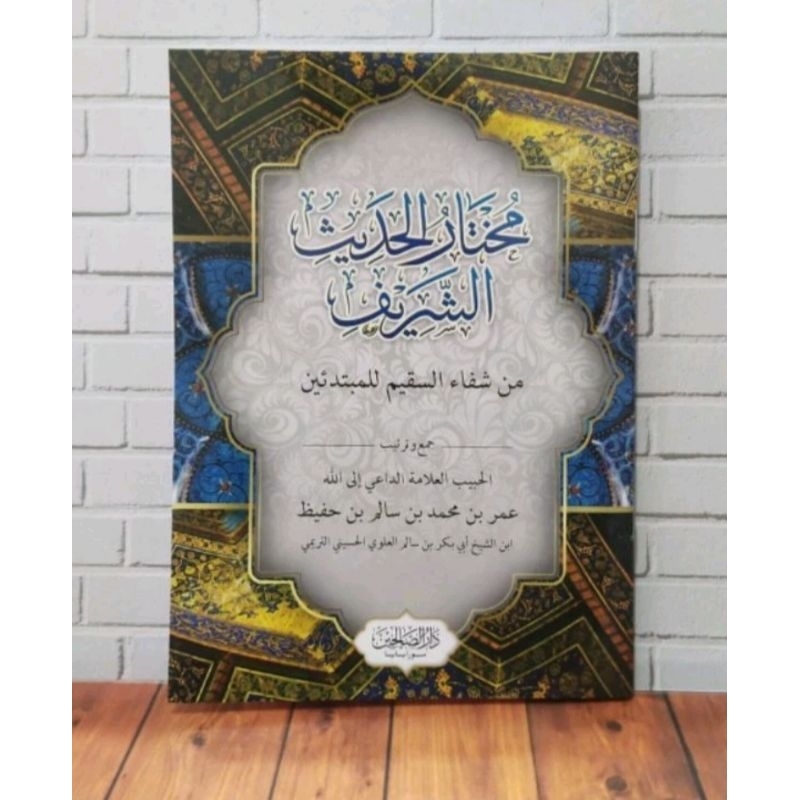 مُختَارُ الحَدِيثِ
الشَّرِيفِ
من شفاء السقيم للمبتدئين
جمع وترتيب
الحبيب العلامة الداعي إلى الله
عمر بن محمد بن سالم بن حفيظ
ابن الشيخ أبي بكر بن سالم العلوي الحسيني التريمي
دَارُ الصَّالِحِينَ
سورابايا